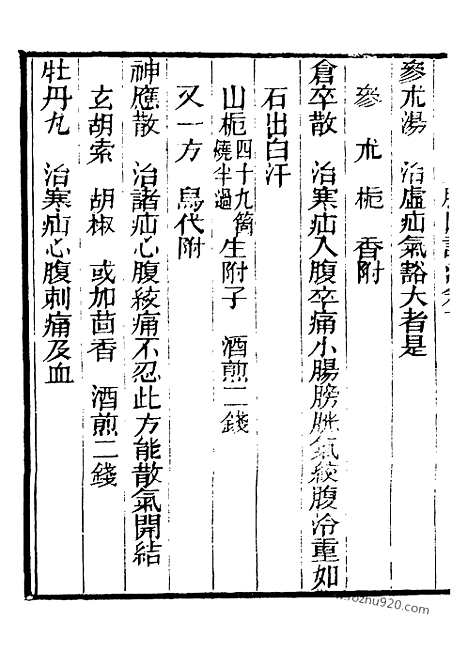 參朮湯　治虛疝氣豁大者是
參　朮　梔　香附
倉卒散　治寒疝入腹卒痛小腸膀胱氣絞腹冷重如
石出白汗
山梔四十九箇燒半過　生附子　酒煎二錢
又一方　烏代附
神應散　治諸疝心腹絞痛不忍此方能散氣開結
玄胡索　胡椒　或加茴香　酒煎二錢
牡丹丸　治寒疝心腹刺痛及血